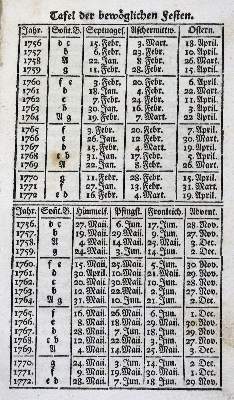 Tafel der bewöglichen Festen.
Jahr. Soñt.B. Septuages. Aschermittw. Ostern.
1756 d c 15. Febr. 3. Mart. 18. April.
1757 b 6. Febr. 23. Febr. 10. April.
1758 A 22. Jan. 8. Febr. 26. Mart.
1759 g 11. Febr. 28. Febr. 15. April.
1760 f e 3. Febr. 20. Febr. 6. April.
1761 d 18. Jan. 4. Febr. 22. Mart.
1762 c 7. Febr. 24. Febr. 11. April.
1763 b 30. Jan. 16. Febr. 3. April.
1764 A g 19. Febr. 7. Mart. 22. April.
1765 f 3. Febr. 20. Febr. 7. April.
1766 e 26. Jan. 12. Febr. 30. Mart.
1767 d 15. Febr. 4. Mart. 19. April.
1768 c b 31. Jan. 17. Febr. 3. April.
1769 A 22. Jan. 8. Febr. 26. Mart.
1770 g 11. Febr. 28. Febr. 15. April.
1771 f 27. Jan. 13. Febr. 31. Mart.
1772 e d 16. Febr. 4. Mart. 19. April.
Jahr. Soñt.B. Himmelf. Pfingst. Fronleich. Advent.
1756. d c 27. Maii. 6. Jun. 17. Jun. 28. Nov.
1757. b 19. Maii. 29. Maii. 9. Jun. 27. Nov.
1758. A 4. Maii. 14. Maii. 25. Maii. 3. Dec.
1759. g 24. Maii. 3. Jun. 14. Jun. 2. Dec.
1760. f e 15. Maii. 25. Maii. 5. Jun. 30. Nov.
1761. d 30. April. 10. Maii. 21. Maii. 29. Nov.
1762. c 20. Maii. 30. Maii. 10. Jun. 28. Nov.
1763. b 12. Maii. 22. Maii. 2. Jun. 27. Nov.
1764. A g 31. Maii. 10. Jun. 21. Jun. 2. Dec.
1765. f 16. Maii. 26. Maii. 6. Jun. 1. Dec.
1766. e 8. Maii. 18. Maii. 29. Maii. 30. Nov.
1767. d 28. Maii. 7. Jun. 18. Jun. 29. Nov.
1768. c b 12. Maii. 22. Maii. 2. Jun. 27. Nov.
1769. A 4. Maii. 14. Maii. 25. Maii. 3. Dec.
1770. g 24. Maii. 3. Jun. 14. Jun. 2. Dec.
1771. f 9. Maii. 19. Maii. 30. Maii. 1. Dec.
1772. e d 28. Maii. 7. Jun. 18. Jun. 29. Nov.